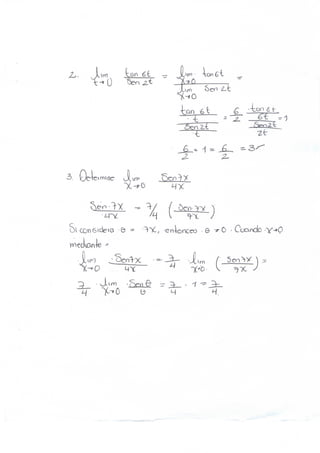 2. lim t→0 tan 6t / Sen 2t = lim x→0 tan 6t / lim x→0 Sen 2t =
tan 6t / t / Sen 2t / t = 6/2 · tan 6t / 6t / Sen 2t / 2t = 1
6/2 · 1 = 6/2 = 3
3. Determine lim x→0 Sen 7x / 4x
Sen 7x / 4x = 7/4 ( Sen 7x / 7x )
Si considera θ = 7x, entonces θ → 0 . Cuando x→0
mediante =
lim x→0 Sen 7x / 4x = 7/4 · lim x→0 ( Sen 7x / 7x ) =
7/4 · lim x→0 Sen θ / θ = 7/4 · 1 = 7/4